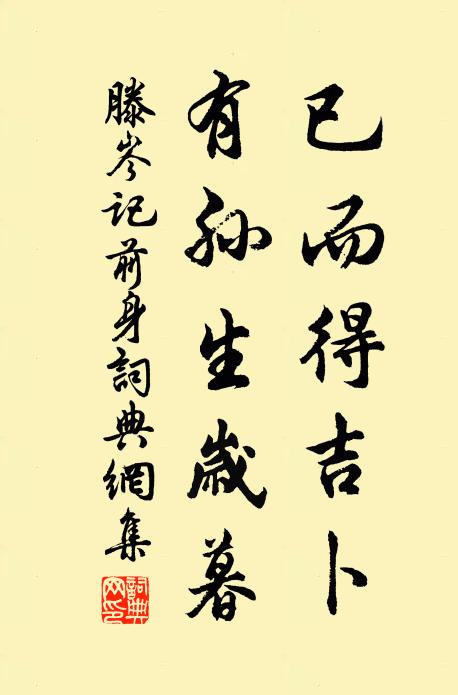 已而得吉卜
有孙生歲暮
滕岑记前身詞典網集
詞典网印